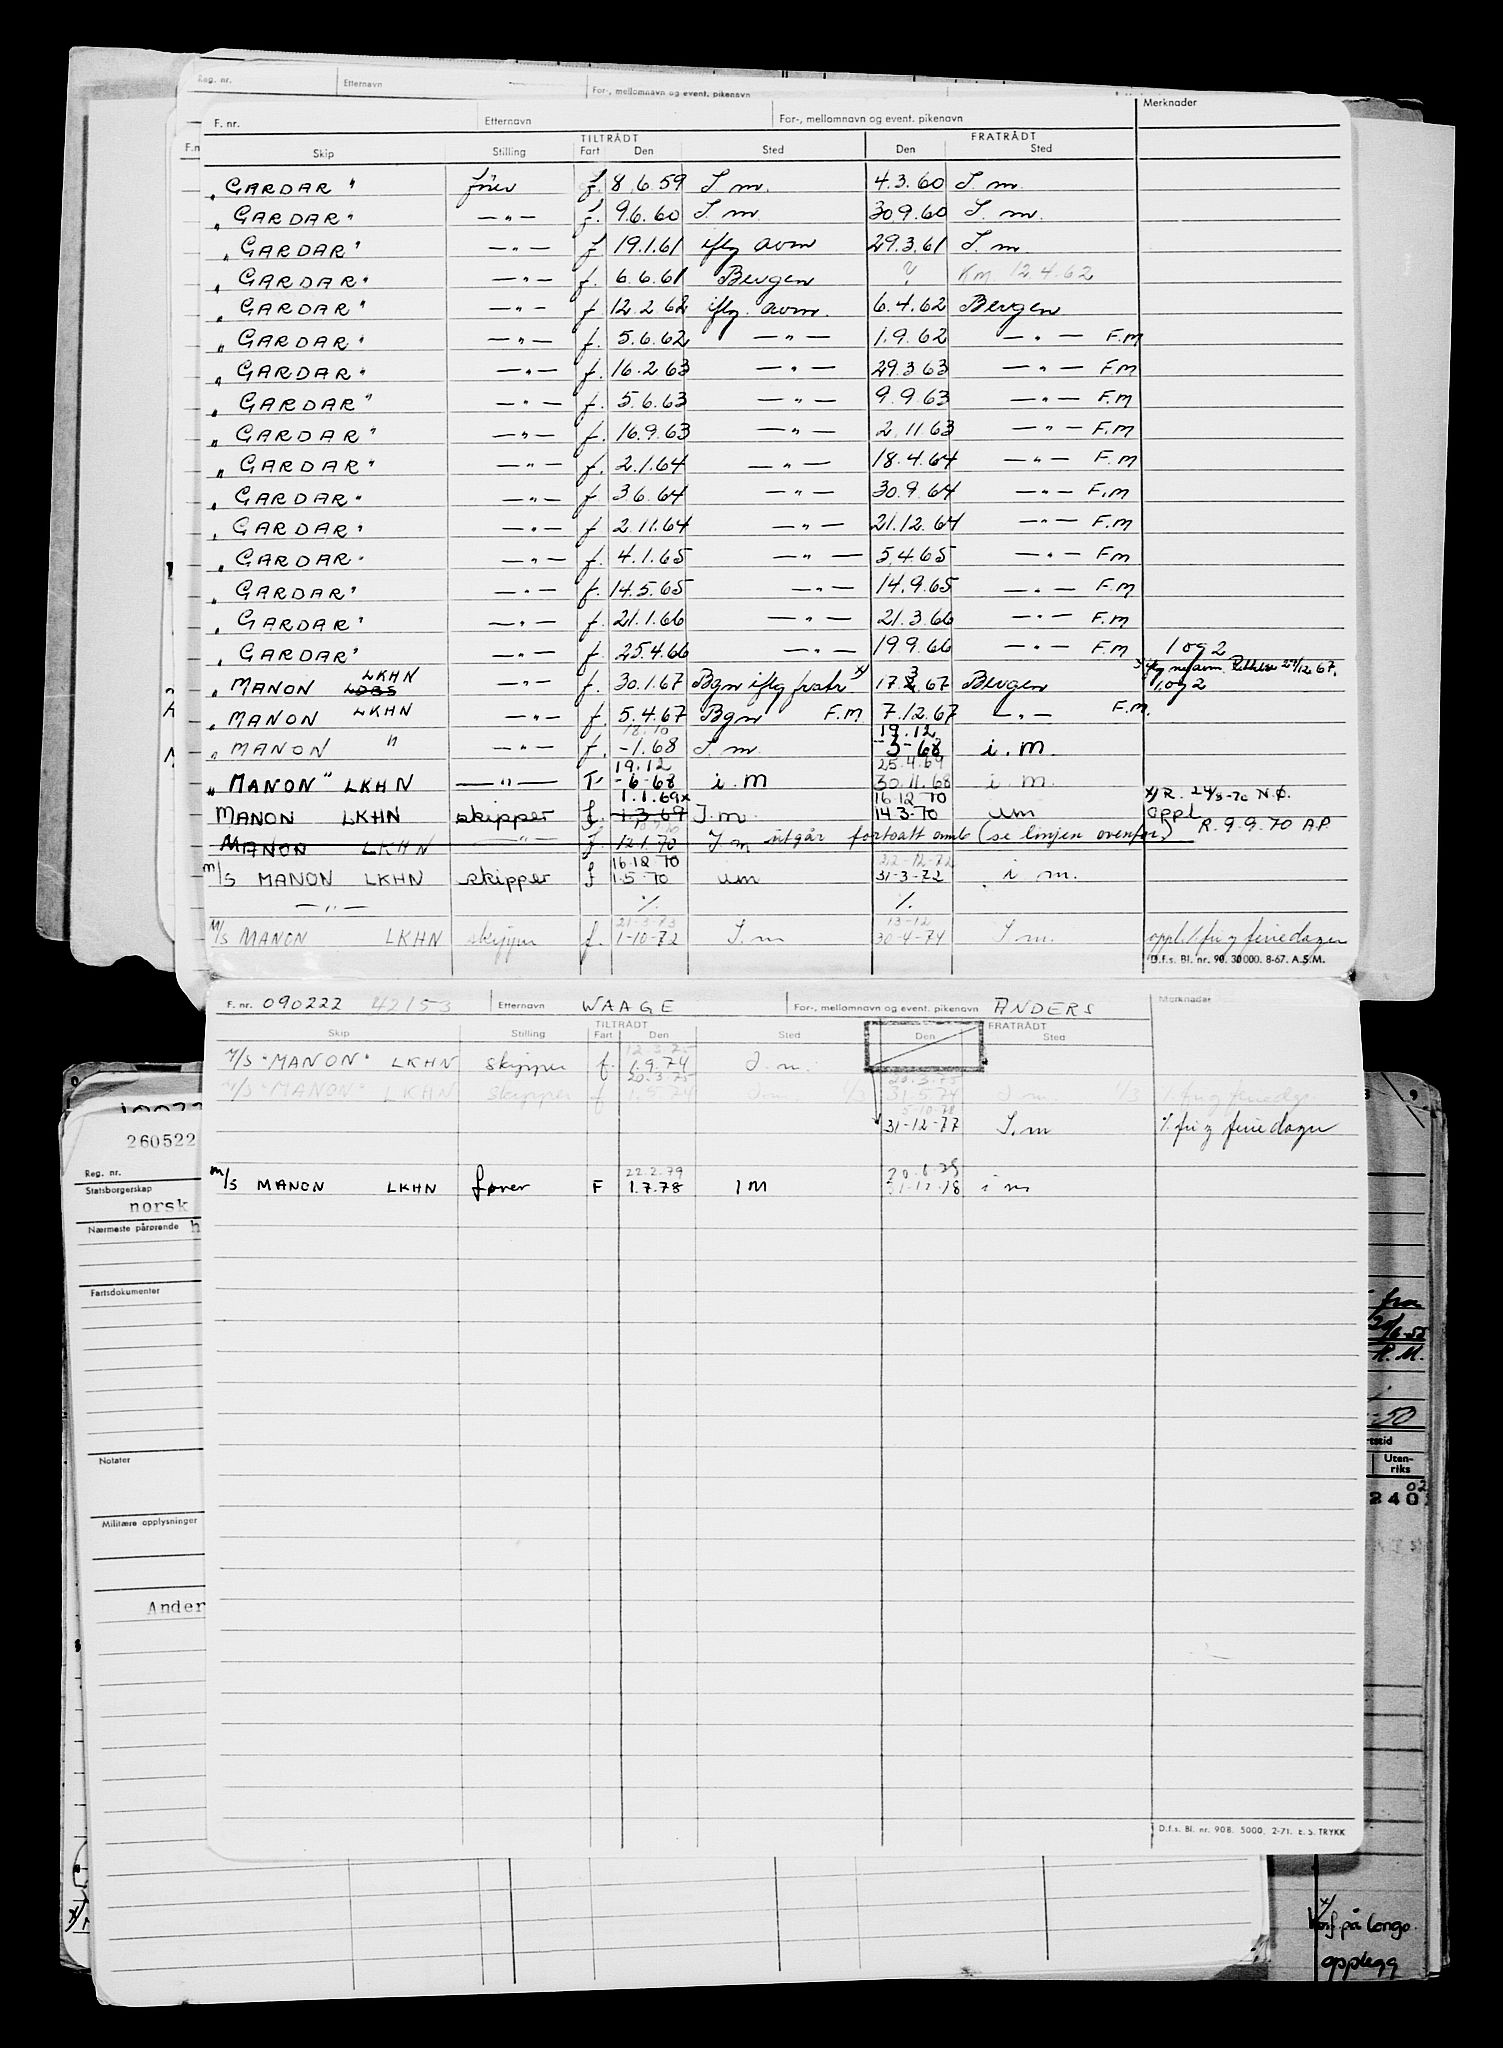 Reg. nr. Etternavn For-, mellomnavn og event. pikenavn
F. nr. Etternavn For-, mellomnavn og event. pikenavn Merknader
TILTRÅDT FRATRÅDT
Skip Stilling Fart Den Sted Den Sted
"GARDAR" fører f. 8.6.59 I m. 4.3.60 I m.
"GARDAR" — " — f. 9.6.60 I m. 30.9.60 I. m.
"GARDAR" — " — f 19.1.61 iflg avm 29.3.61 I. m
"GARDAR" — " — f. 6.6.61 Bergen ? Km. 12.4.62
"GARDAR" — " — f 12.2.62 iflg. avm. 6.4.62 Bergen
"GARDAR" — " — f. 5.6.62 — " — 1.9.62 — " — F.M
"GARDAR" — " — f. 16.2.63 — " — 29.3.63 — " — F.M
"GARDAR" — " — f. 5.6.63 — " — 9.9.63 — " — F.M
"GARDAR" — " — f. 16.9.63 — " — 2.11.63 — " — F.M
"GARDAR" — " — f. 2.1.64 — " — 18.4.64 — " — F.M
"GARDAR" — " — f 3.6.64 — " — 30.9.64 — " — F.M
"GARDAR" — " — f 2.11.64 — " — 21.12.64 — " — F.M
"GARDAR" — " — f. 4.1.65 — " — 5.4.65 — " — F.M
"GARDAR" — " — f. 14.5.65 — " — 14.9.65 — " — F.M
"GARDAR" — " — f. 21.1.66 — " — 21.3.66 — " — F.M
"GARDAR" — " — f. 25.4.66 — " — 19.9.66 — " — F.M 1 og 2
"MANON LKHN LDBS — " — f. 30.1.67 Bgn iflg fratr x) 17.3.67 Bergen 27/12.67. 1 og 2
"MANON LKHN — " — f. 5.4.67 Bgn F.M 7.12.67 — " — F.M.
18.10 19.12
"MANON " — " — f. -1.68 I. m. -3-68 i. m.
19.12 25.4.69
"MANON" LKHN — " — T. -6-68 i. M 30.11.68 i. m.
1.1.69x 16.12.70 x) R. 24/3-70 N.Ø.
MANON LKHN skipper f. 1-3-69 I.m. 14.3-70 um oppl.
MANON LKHN — " — f. 12.1.70 I m utgår fortsatt omb (se linjen ovenfor) R. 9.9.70 AP
16.12 70 22-12-72
M/S MANON LKHN skipper f 1.5-70 um 31-3-72 i m.
— " — % %
21-3-73 13-12
M/S MANON LKHN skipper f. 1-10-72 I.m 30-4-74 I m. oppl. / fri g feriedager
D.f.s. Bl. nr. 90. 30000. 8-67. A.S.M.
F. nr. 090222 42153 Etternavn WAAGE For-, mellomnavn og event. pikenavn ANDERS Merknader
TILTRÅDT FRATRÅDT
Skip Stilling Fart Den Sted Den Sted
M/S "MANON" LKHN skipper f. 1.9.74 I. m.
20.3.75
M/S "MANON" LKHN skipper f 1.5.74 I m. 1/3 31.5.74 I m. 1/3 % fri g feriedag.
5-10-78
31-12-77 I.m % fri g feriedager
22.2.79
M/S MANON LKHN fører F 1.7.78 I M 31-12-78 i m
D.f.s. Bl. nr. 90B. 5000. 2-71. E. S. TRYKK
260522
Reg. nr.
Statsborgerskap
norsk
Nærmeste pårørende
Fartsdokumenter
Notater
Militære opplysninger
Ander
fra
R. M.
-50
Uten-
riks
240
02
x/
Konf. på Longo.
opplegg